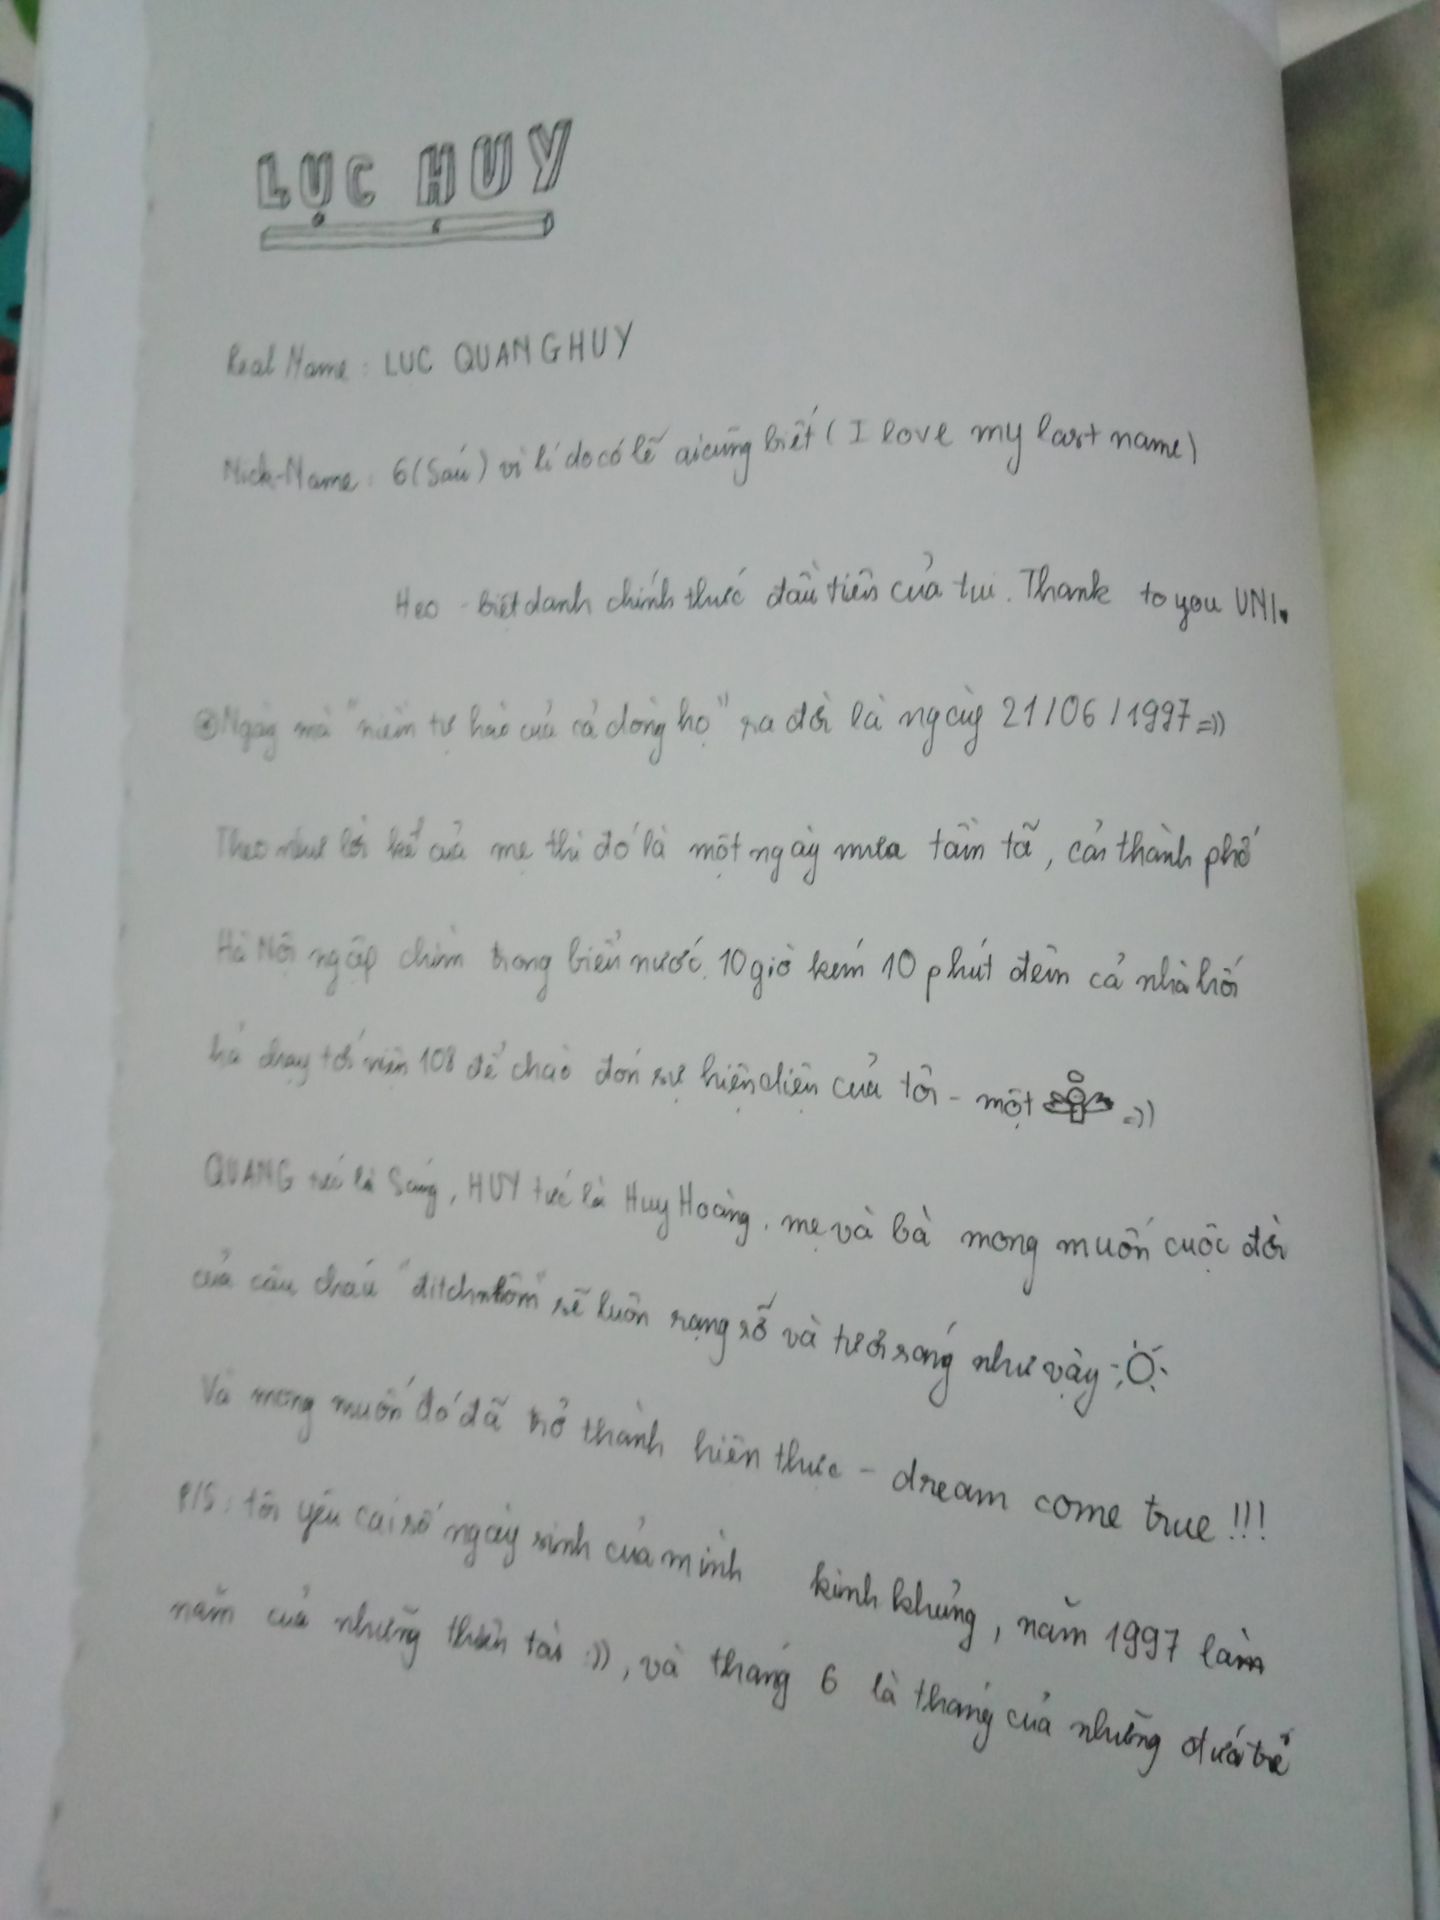 LỤC HUY
Real Name: LUC QUANG HUY
Nick-Name: 6 (Sáu) vì lí do có lẽ ai cũng biết (I love my last name)
Heo - biệt danh chính thức đầu tiên của tui. Thank to you UNI.
Ngày mà "niềm tự hào của cả dòng họ" ra đời là ngày 21/06/1997 =))
Theo như lời kể của mẹ thì đó là một ngày mưa tầm tã, cả thành phố
Hà Nội ngập chìm trong biển nước. 10 giờ kém 10 phút đêm cả nhà hối
hả chạy tới viện 108 để chào đón sự hiện diện của tôi - một =))
QUANG tức là Sáng, HUY tức là Huy Hoàng. mẹ và bà mong muốn cuộc đời
của cậu cháu "đítchnhôm" sẽ luôn rạng rỡ và tươi sáng như vậy
Và mong muốn đó đã trở thành hiện thực - dream come true!!!
P/S: tôi yêu cái số ngày sinh của mình kinh khủng, năm 1997 là
năm của những thiên tài :)), và tháng 6 là tháng của những đứa trẻ